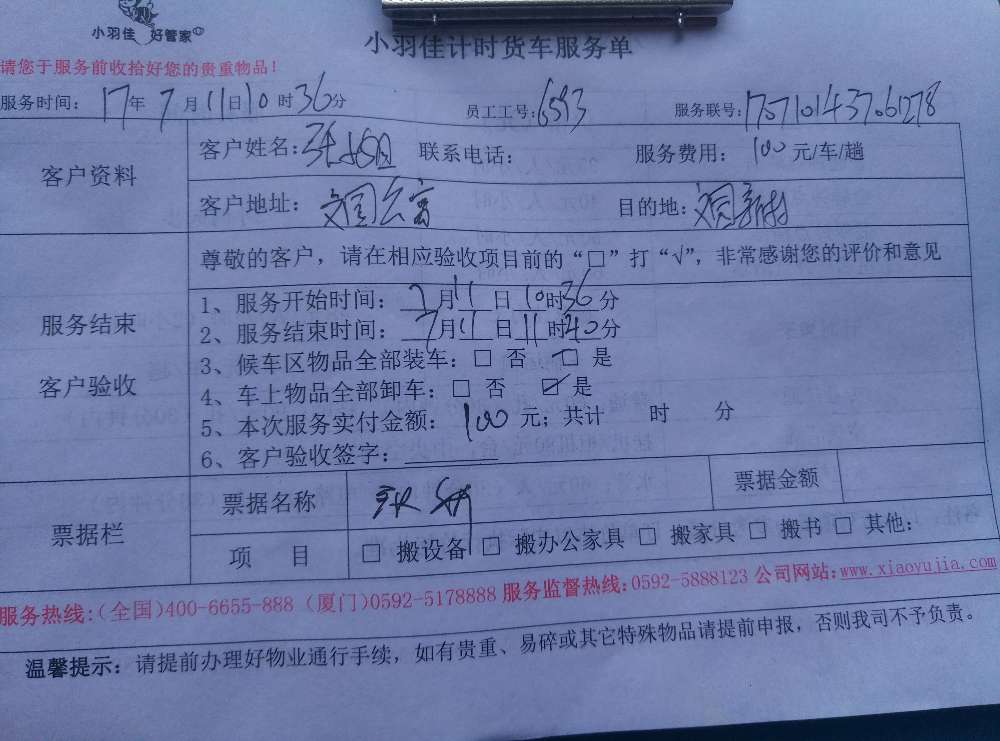 小羽佳 好管家
小羽佳计时货车服务单
请您于服务前收拾好您的贵重物品！
服务时间： 17年 7月11日10时36分 员工工号：6593 服务联号：
客户资料 客户姓名： 联系电话： 服务费用： 100元/车/趟
客户地址： 文园公寓 目的地：文园新村
尊敬的客户，请在相应验收项目前的“□”打“√”，非常感谢您的评价和意见
服务结束
客户验收
1、服务开始时间： 7月11日10时36分
2、服务结束时间： 7月11日11时40分
3、候车区物品全部装车：□ 否 □ 是
4、车上物品全部卸车：□ 否 ☑ 是
5、本次服务实付金额： 100 元；共计 时 分
6、客户验收签字：
票据栏 票据名称 票据金额
项 目 □ 搬设备 □ 搬办公家具 □ 搬家具 □ 搬书 □ 其他：
服务热线：（全国）400-6655-888（厦门）0592-5178888 服务监督热线：0592-5888123 公司网站：www.xiaoyujia.com
温馨提示：请提前办理好物业通行手续，如有贵重、易碎或其它特殊物品请提前申报，否则我司不予负责。